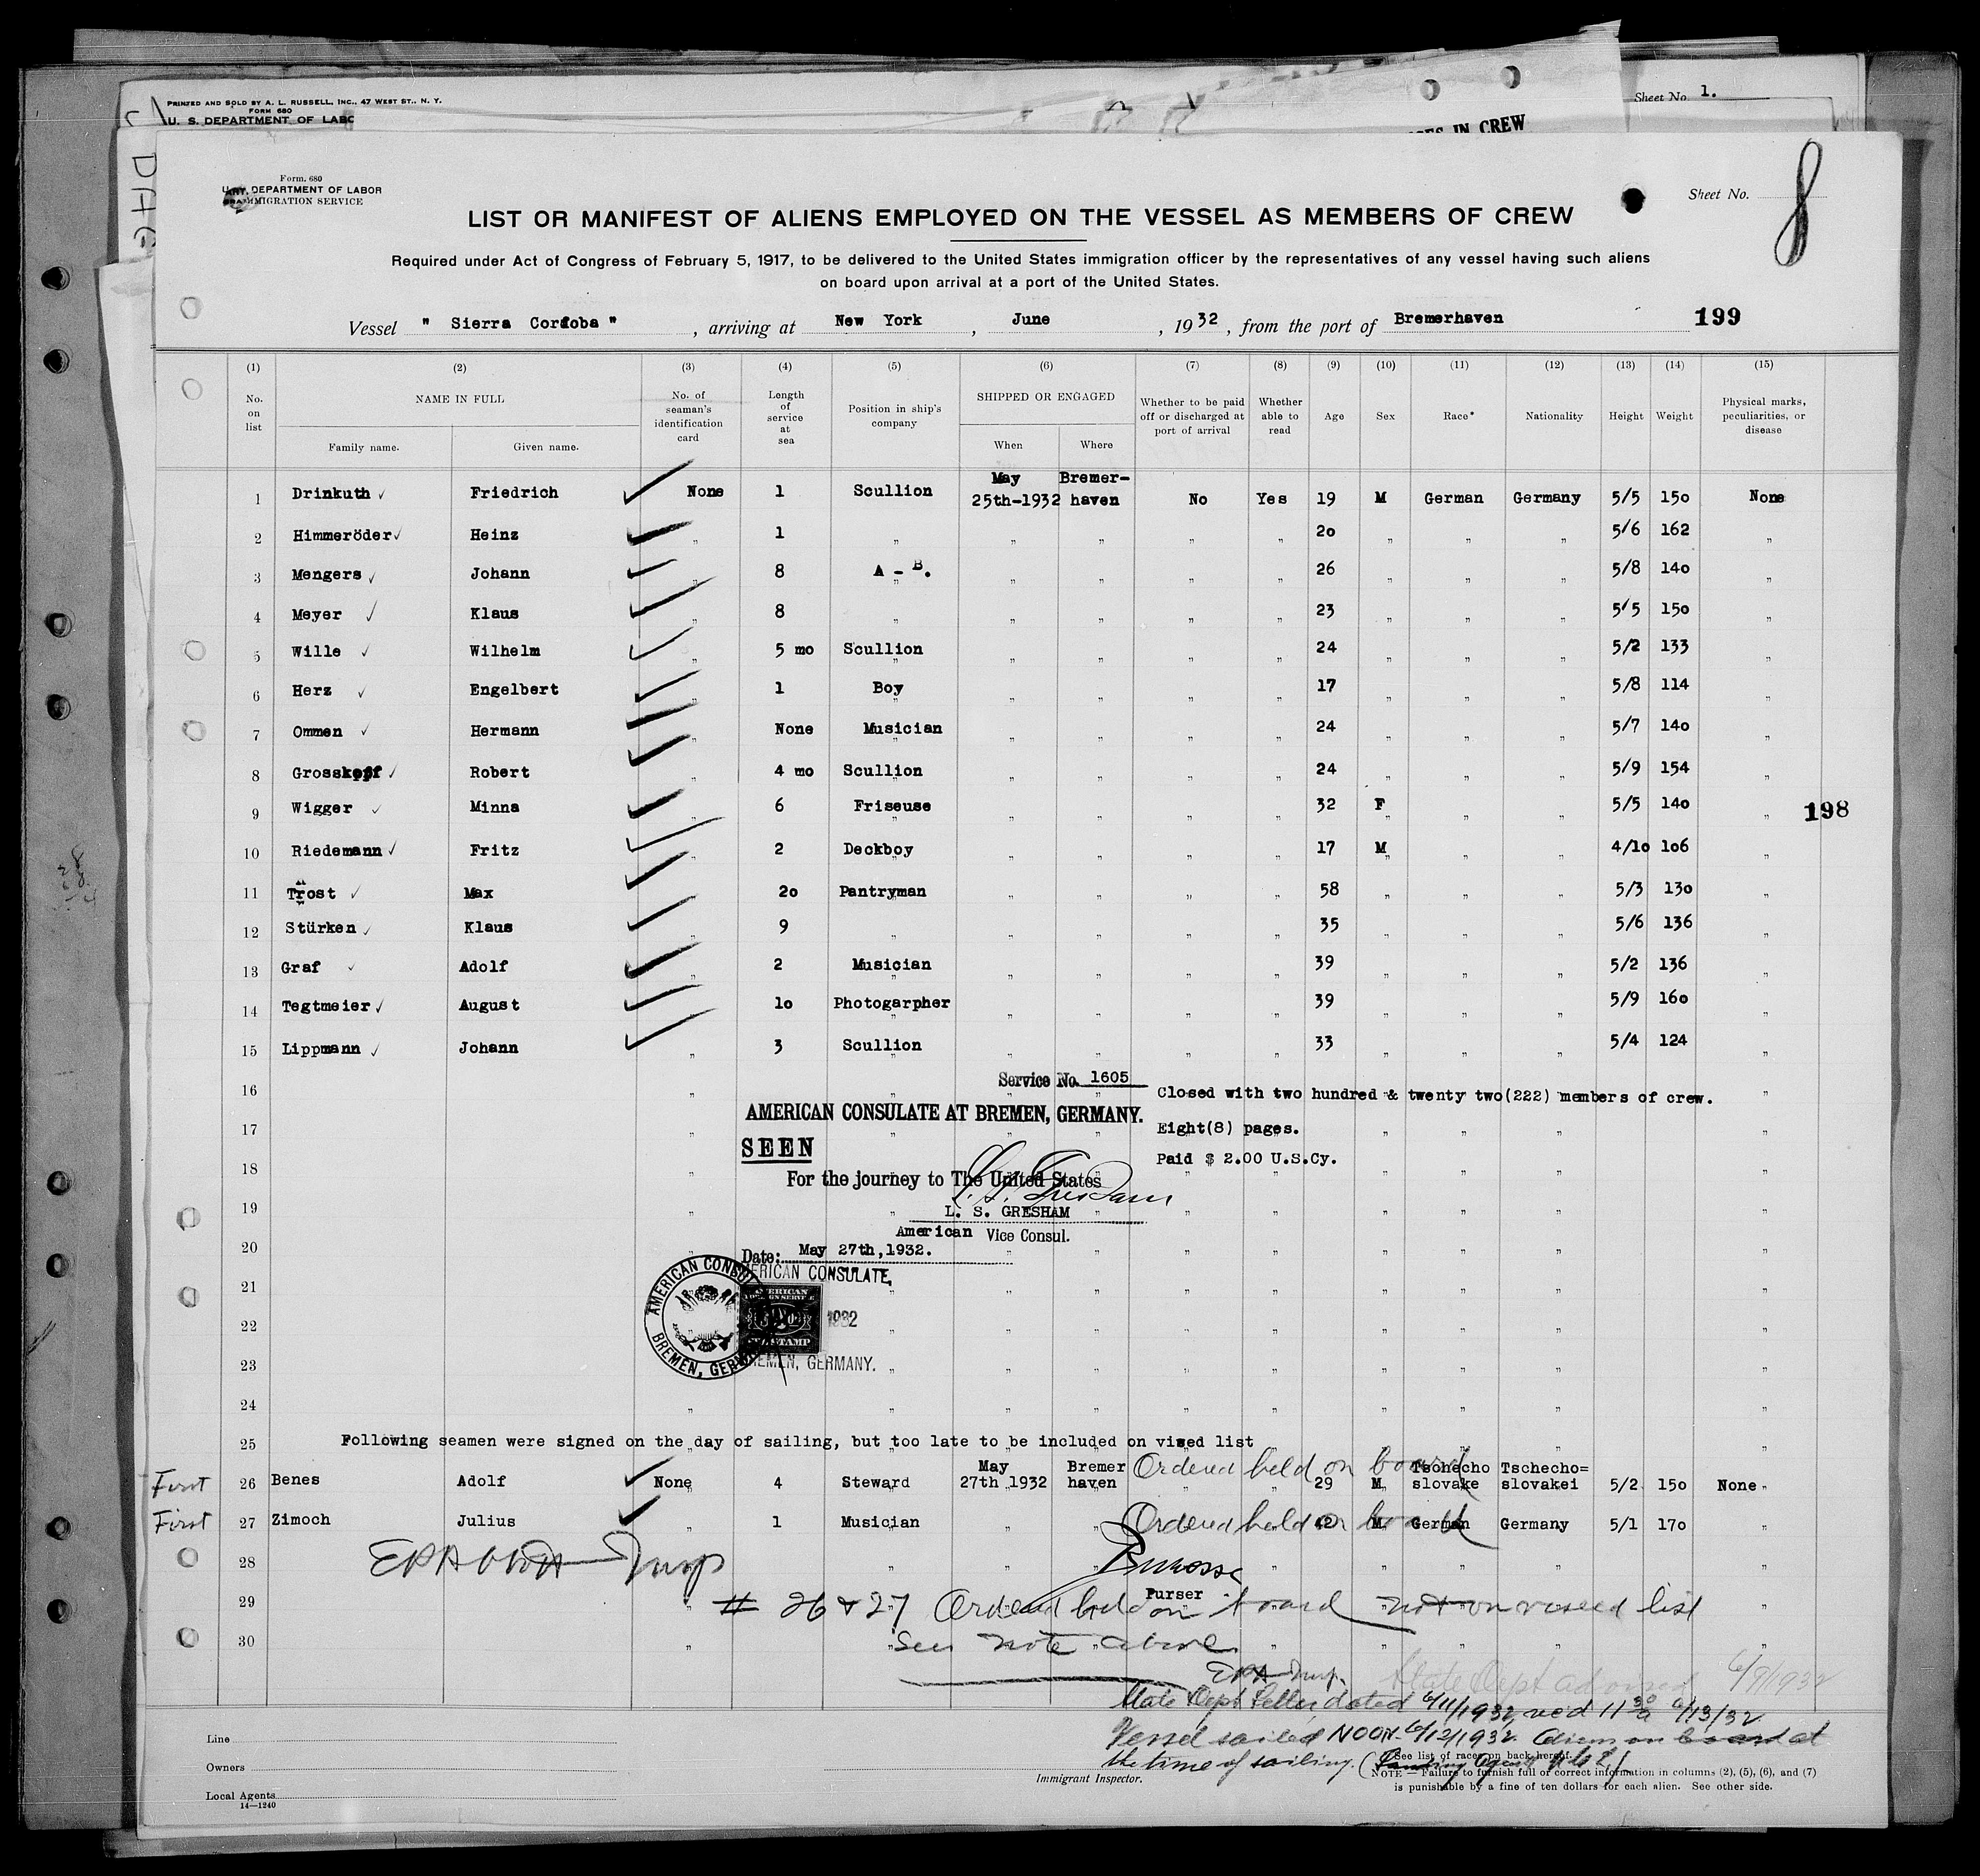 PRINTED AND SOLD BY A. L. RUSSELL, INC., 47 WEST ST., N. Y.
FORM 680
U. S. DEPARTMENT OF LABO
Sheet No. 1.
IN CREW
Form. 680
DEPARTMENT OF LABOR
IMMIGRATION SERVICE
Sheet No. 8
LIST OR MANIFEST OF ALIENS EMPLOYED ON THE VESSEL AS MEMBERS OF CREW
Required under Act of Congress of February 5, 1917, to be delivered to the United States immigration officer by the representatives of any vessel having such aliens
on board upon arrival at a port of the United States.
Vessel " Sierra Cordoba " , arriving at New York , June , 1932 , from the port of Bremerhaven 199
(1) (2) (3) (4) (5) (6) (7) (8) (9) (10) (11) (12) (13) (14) (15)
No. on list NAME IN FULL Family name. Given name. No. of seaman's identification card Length of service at sea Position in ship's company SHIPPED OR ENGAGED When Where Whether to be paid off or discharged at port of arrival Whether able to read Age Sex Race* Nationality Height Weight Physical marks, peculiarities, or disease
1 Drinkuth Friedrich None 1 Scullion May 25th-1932 Bremer-haven No Yes 19 M German Germany 5/5 150 None
2 Himmeröder Heinz " 1 " " " " " 20 " " " 5/6 162 "
3 Mengers Johann " 8 A - B. " " " " 26 " " " 5/8 140 "
4 Meyer Klaus " 8 " " " " " 23 " " " 5/5 150 "
5 Wille Wilhelm " 5 mo Scullion " " " " 24 " " " 5/2 133 "
6 Herz Engelbert " 1 Boy " " " " 17 " " " 5/8 114 "
7 Ommen Hermann " None Musician " " " " 24 " " " 5/7 140 "
8 Grosskopf Robert " 4 mo Scullion " " " " 24 " " " 5/9 154 "
9 Wigger Minna " 6 Friseuse " " " " 32 F " " 5/5 140 " 198
10 Riedemann Fritz " 2 Deckboy " " " " 17 M " " 4/10 106 "
11 Trost Max " 20 Pantryman " " " " 58 " " " 5/3 130 "
12 Stürken Klaus " 9 " " " " " 35 " " " 5/6 136 "
13 Graf Adolf " 2 Musician " " " " 39 " " " 5/2 136 "
14 Tegtmeier August " 10 Photogarpher " " " " 39 " " " 5/9 160 "
15 Lippmann Johann " 3 Scullion " " " " 33 " " " 5/4 124 "
16 Service No. 1605 Closed with two hundred & twenty two(222) members of crew.
AMERICAN CONSULATE AT BREMEN, GERMANY.
17 Eight(8) pages.
SEEN
18 Paid $ 2.00 U.S.Cy.
For the journey to The United States
19 L. S. GRESHAM
American Vice Consul.
20 Date: May 27th,1932.
21 AMERICAN CONSULATE, BREMEN, GERMANY
ERICAN CONSULATE,
AMERICAN
22 1932
STAMP
23 EMEN, GERMANY.
24
25 Following seamen were signed on the day of sailing, but too late to be included on vised list
Ordered held on board
First 26 Benes Adolf None 4 Steward May 27th 1932 Bremer haven 29 M Tschecho slovake Tschecho= slovakei 5/2 150 None
First 27 Zimoch Julius 1 Musician " " Ordered held on board M German Germany 5/1 170 "
28
Purser
29 # 26 & 27 Ordered held on board not on viseed list
30 See note above
State Dept advised 6/9/1932
State Dept letter dated 6/11/1932, recd 11 30 a 6/13/32
Vessel sailed NOON 6/12/1932. Aliens on board at
the time of sailing.
Line
Owners
Local Agents
14—1240
Immigrant Inspector.
*See list of races on back hereof.
NOTE — Failure to furnish full or correct information in columns (2), (5), (6), and (7)
is punishable by a fine of ten dollars for each alien. See other side.